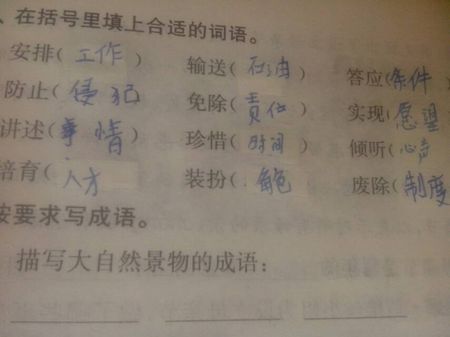 、在括号里填上合适的词语。
安排(工作) 输送(石油) 答应(条件)
防止(侵犯) 免除(责任) 实现(愿望
讲述(事情) 珍惜(时间) 倾听(心声
培育(人才 装扮( ) 废除(制度
按要求写成语。
描写大自然景物的成语：